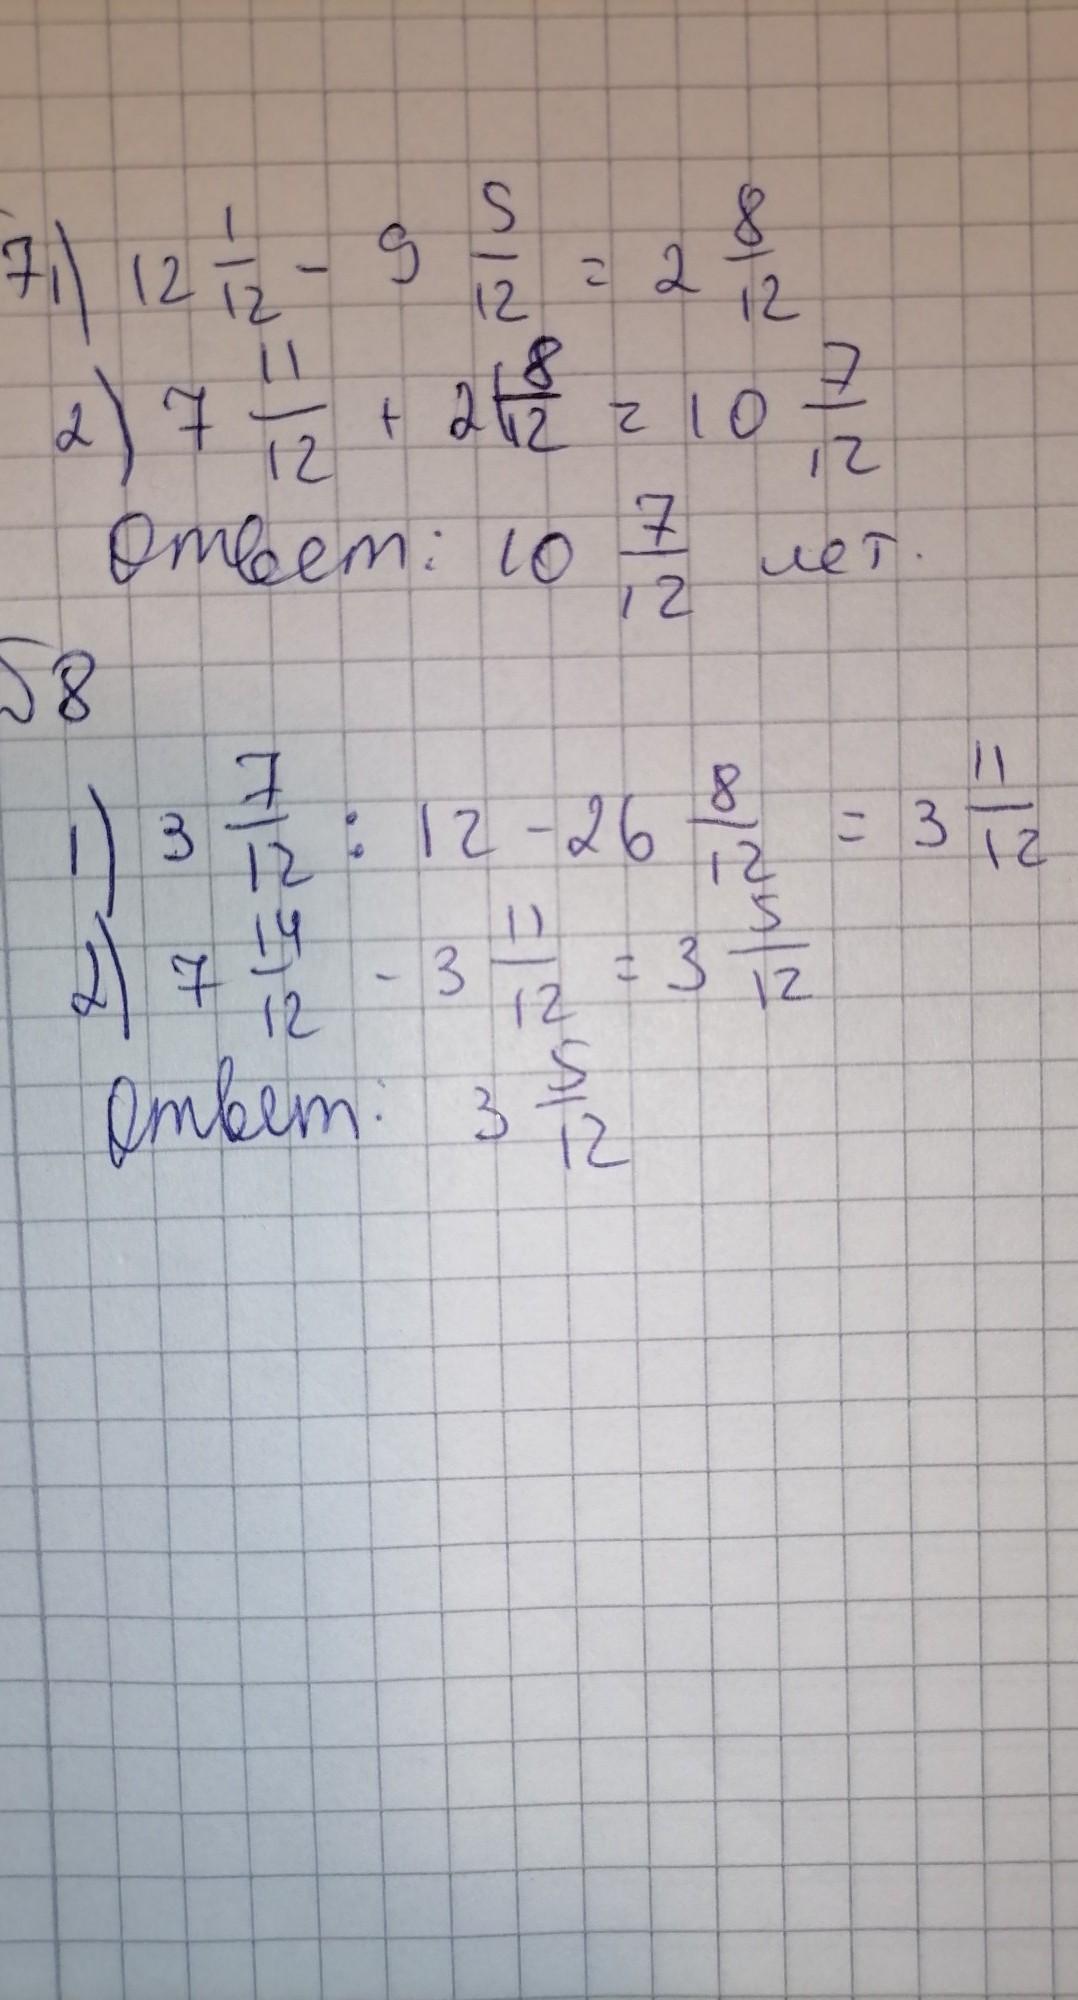 7
1) 12 1/12 - 9 5/12 = 2 8/12
2) 7 11/12 + 2 8/12 = 10 7/12
Ответ: 10 7/12 лет.
8
1) 3 7/12 : 12 - 26 8/12 = 3 11/12
2) 7 14/12 - 3 11/12 = 3 5/12
Ответ: 3 5/12